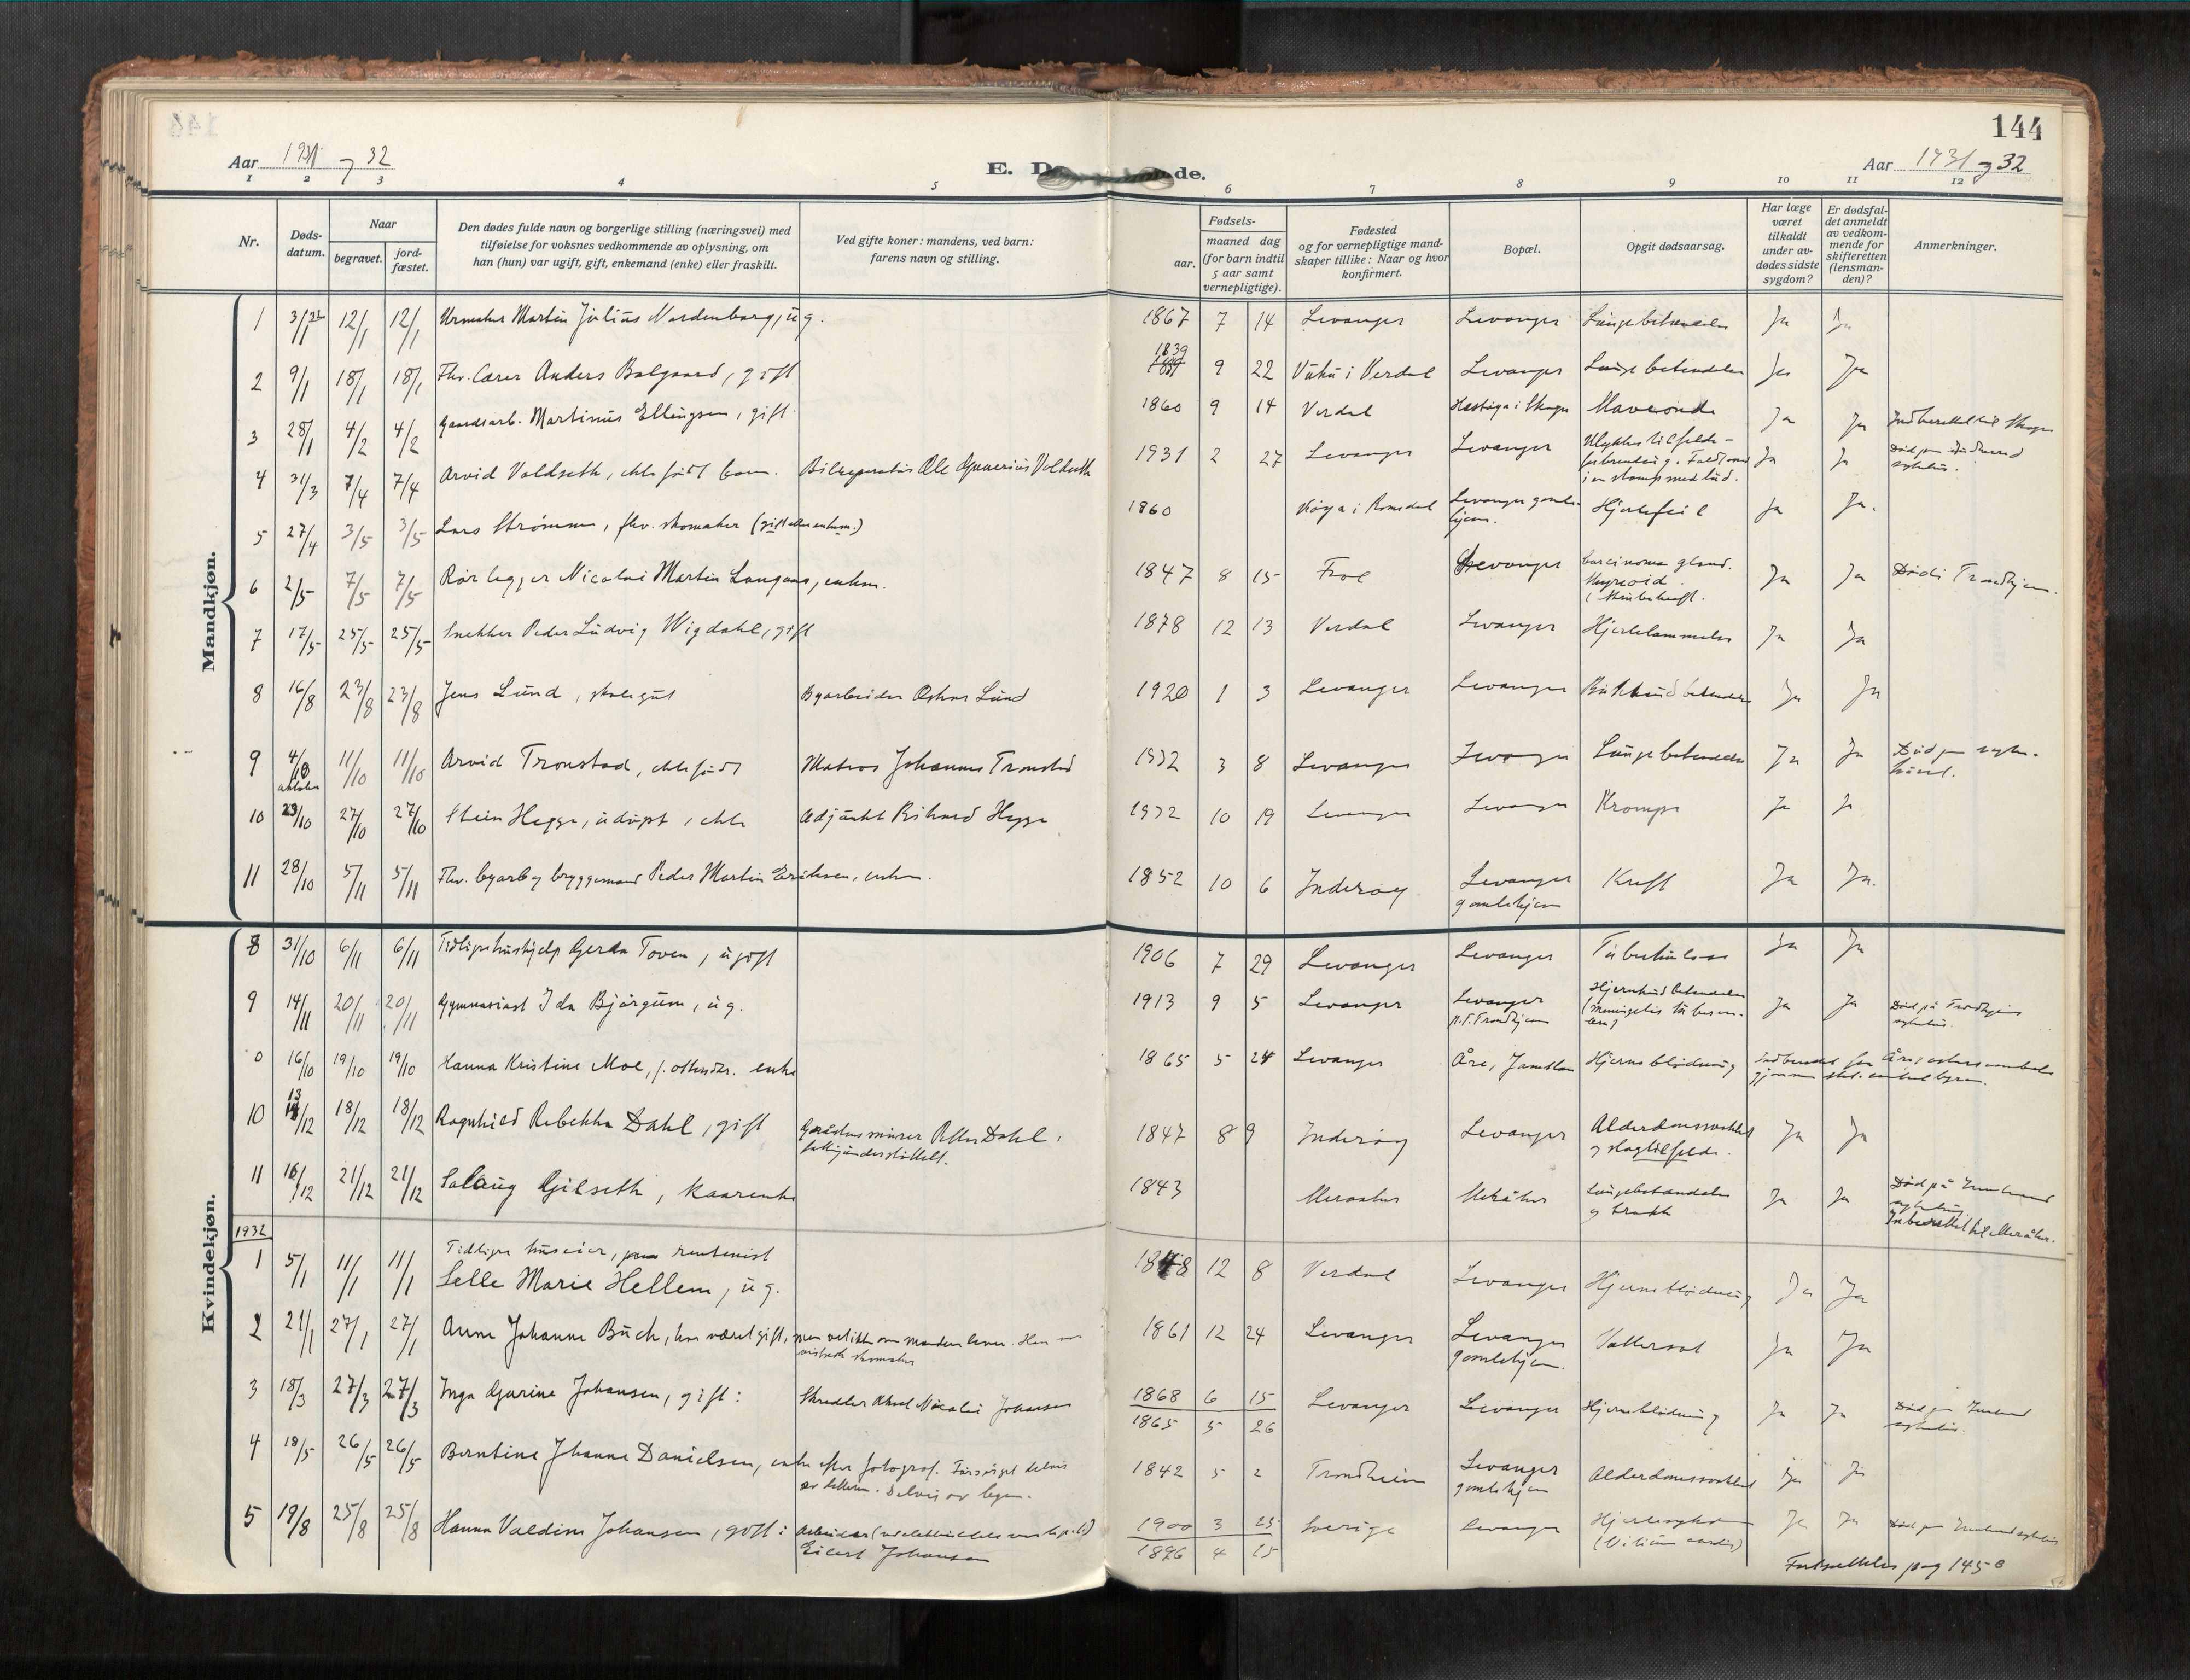 144
Aar 1931 og 32
E. D de.
Aar 1931 og 32
1 2 3 4 5 6 7 8 9 10 11 12
Nr.
Døds-datum.
Naar
begravet.
jord-fæstet.
Den dødes fulde navn og borgerlige stilling (næringsvei) med tilføielse for voksnes vedkommende av oplysning, om han (hun) var ugift, gift, enkemand (enke) eller fraskilt.
Ved gifte koner: mandens, ved barn: farens navn og stilling.
Fødsels-
aar.
maaned dag (for barn indtil 5 aar samt vernepligtige).
Fødested og for vernepligtige mandskaper tillike: Naar og hvor konfirmert.
Bopæl.
Opgit dødsaarsag.
Har læge været tilkaldt under avdødes sidste sygdom?
Er dødsfaldet anmeldt av vedkommende for skifteretten (lensmanden)?
Anmerkninger.
Mandkjøn.
1 3/1 32 12/1 12/1 Urmaker Martin Julius Nordenborg, ug. 1867 7 14 Levanger Levanger Lungebetændelse Ja Ja
2 9/1 18/1 18/1 Fhv. Lærer Anders Balgaard, gift 1839 9 22 Vuku i Verdal Levanger Lungebetendelse Ja Ja
3 28/1 4/2 4/2 Gaardsarb. Martinus Ellingsen, gift 1860 9 14 Verdal i Skogn Mavesonde Ja Ja Indberettet til Skogn
4 31/3 7/4 7/4 Arvid Voldseth, ekte født barn. Bilreparatør Ole Voldseth 1931 2 27 Levanger Levanger Ulykkestilfelde - forbrending. Faldt ned i en stamp med lud. Ja Ja Død på Innherred sykehus.
5 27/4 3/5 3/5 Lars Strømmen, fhv. skomaker (gift eller enkem.) 1860 i Romsdal Levanger gamlehjem. Hjertefeil Ja Ja.
6 2/5 7/5 7/5 Rørlegger Nicolai Martin Langaas, enkem. 1847 8 15 Frol Levanger Carcinoma gland. thyreoid. (Strubekreft. Ja Ja Død i Trondhjem.
7 17/5 25/5 25/5 Snekker Peder Ludvig Wigdahl, gift 1878 12 13 Verdal Levanger Hjertelammelse Ja Ja
8 16/8 23/8 23/8 Jens Lund, skolegut Byarbeider Oskar Lund 1920 1 3 Levanger Levanger Bukhindbetendelse Ja Ja
9 4/10 oktober 11/10 11/10 Arvid Tronstad, ekte født Matros Johannes Tronstad 1932 3 8 Levanger Levanger Lungebetendelse Ja Ja Død på sykehuset.
10 23/10 27/10 27/10 Stein Hegge, udøpt, ekte Adjunkt Rikard Hegge 1932 10 19 Levanger Levanger Krampe Ja Ja
11 28/10 5/11 5/11 Fhv. byarb. og bryggemand Peder Martin Eriksen, enkem. 1852 10 6 Inderøy Levanger gamlehjem Kreft Ja Ja.
Kvindekjøn.
8 31/10 6/11 6/11 Tidligere hushjelp Gerda Toven, ugift 1906 7 29 Levanger Levanger Tuberkulose Ja Ja
9 14/11 20/11 20/11 Gymnasiast Ida Bjørgum, ug. 1913 9 5 Levanger Levanger p.t. Trondhjem Hjernehindbetendelse (Meningitis tuberculosa) Ja Ja Død på Trondhjems sykehus.
0 16/10 19/10 19/10 Hanna Kristine Moe, f. Ottersdr. enke 1865 5 24 Levanger Åre, Jämtland Hjerneblødning Indberettet fra Åre gjennem stat. centralbyrå.
10 13/12 18/12 18/12 Ragnhild Rebekka Dahl, gift murer Petter Dahl, fattigunderstøttet. 1847 8 9 Inderøy Levanger Alderdomssvakhet og slagtilfelde. Ja Ja
11 16/12 21/12 21/12 Salaug Gilseth, kaarenke 1843 Meraaker Meråker Lungebetændelse og brokk Ja Ja Død på Innherred sykehus. Inberettet til Meråker.
1932
1 5/1 11/1 11/1 Tidligere huseier, rentenist
Selle Marie Hellem, ug. 1848 12 8 Verdal Levanger Hjerneblødning Ja Ja
2 21/1 27/1 27/1 Anne Johanne Buch, har været gift, men vet ikke om manden lever. Han var visstnok skomaker 1861 12 24 Levanger Levanger gamlehjem. Vattersot Ja Ja
3 18/3 27/3 27/3 Inga Gurine Johansen, gift: Skredder Nicolai Johansen 1868 6 15 1865 5 26 Levanger Levanger Hjerneblødning Ja Ja Død på Innherred sykehus.
4 18/5 26/5 26/5 Berntine Jhanne Danielsen, enke efter fotograf. Forsørget delvis av datteren. Delvis av legat. 1842 5 2 Trondheim Levanger gamlehjem Alderdomssvakhet Ja Ja
5 19/8 25/8 25/8 Hanna Valdine Johansen, gift: Arbeider Eilert Johansen 1900 3 25 1896 4 15 Sverige Levanger Hjertesykdom (Vitium cordis) Ja Ja Død på Innherred sykehus
Fortsettelse pag 145 B